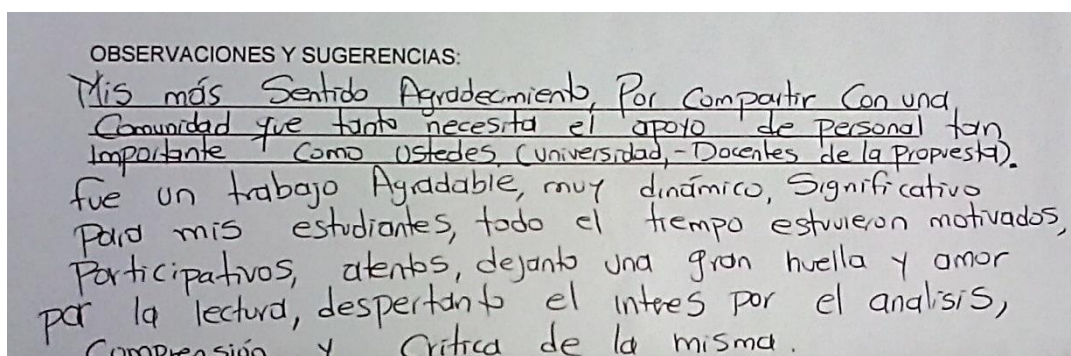 OBSERVACIONES Y SUGERENCIAS:
Mis más Sentido Agradecmiento, Por Compartir Con una
Comunidad que tanto necesita el apoyo de personal tan
Importante Como Ustedes (universidad,-Docentes de la Propuesta).
fue un trabajo Agradable, muy dinámico, Significativo
Para mis estudiantes, todo el tiempo estuvieron motivados,
Participativos, atentos, dejanto una gran huella y amor
por la lectura, despertanto el interes por el analisis,
Comprensión y Critica de la misma.